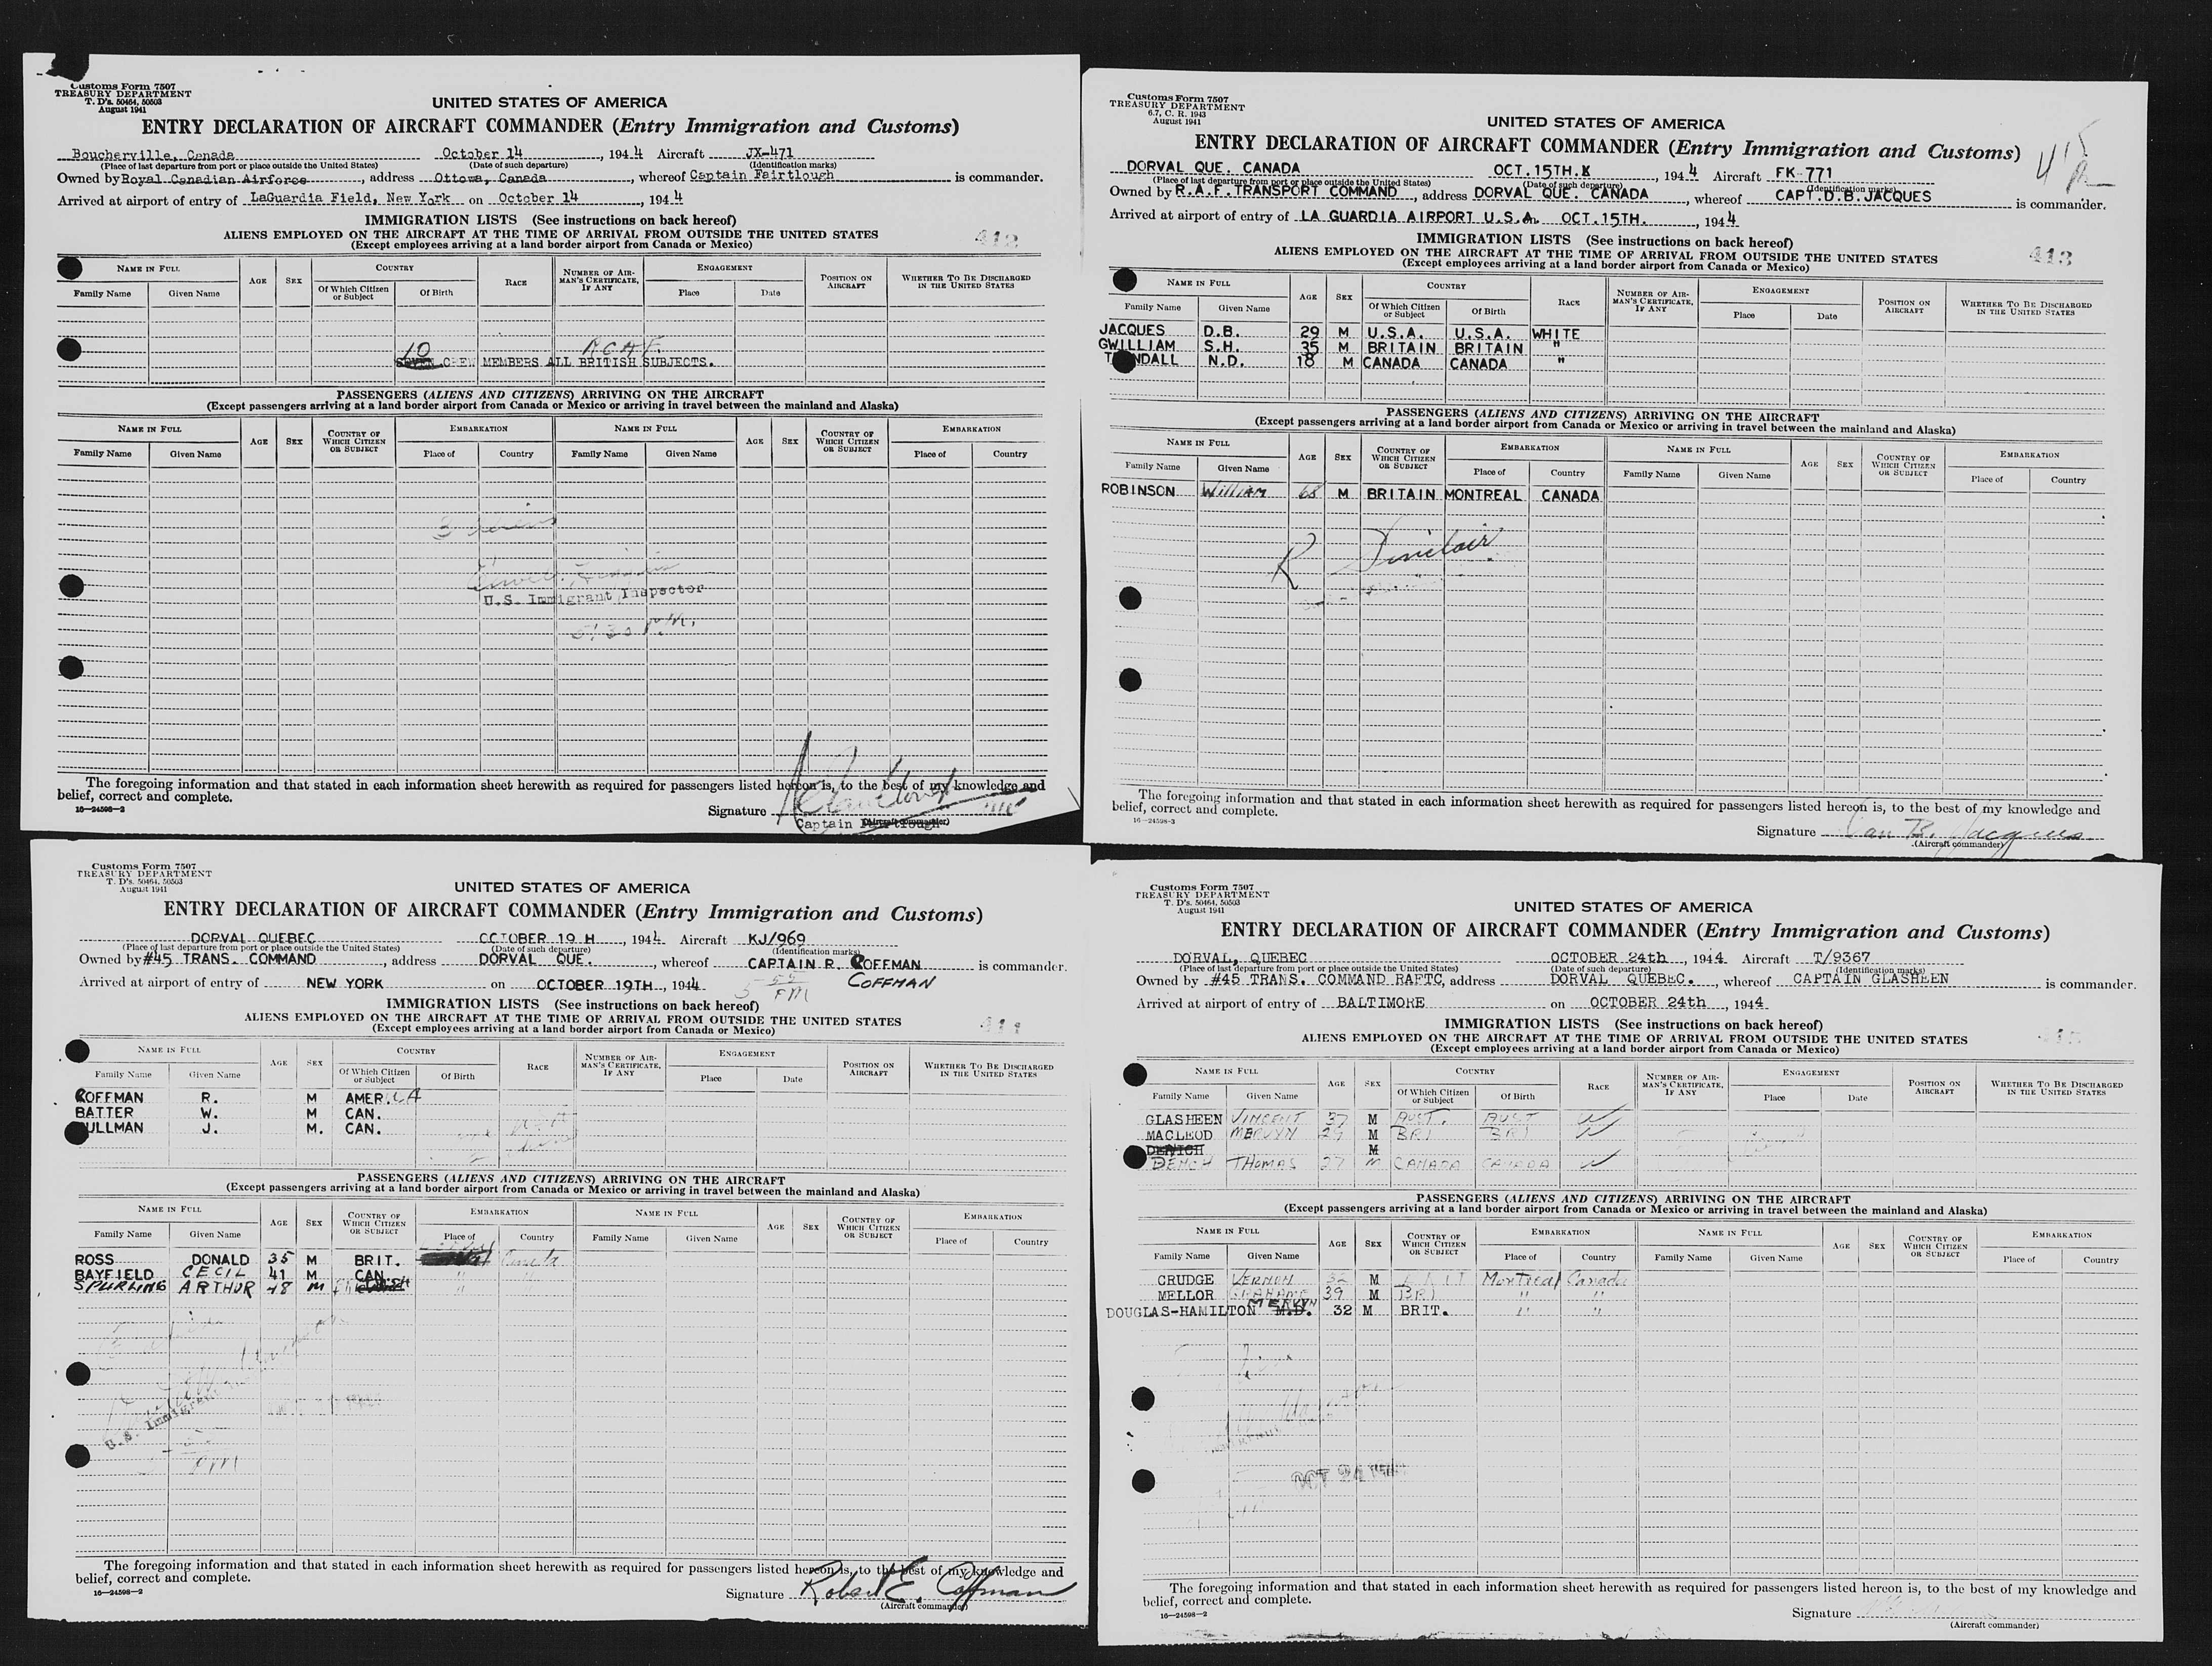 Customs Form 7507
TREASURY DEPARTMENT
T. D's. 50464, 50503
August 1941
UNITED STATES OF AMERICA
ENTRY DECLARATION OF AIRCRAFT COMMANDER (Entry Immigration and Customs)
Boucherville, Canada October 14, 1944 Aircraft JX-471
(Place of last departure from port or place outside the United States) (Date of such departure) (Identification marks)
Owned by Royal Canadian Airforce, address Ottowa, Canada, whereof Captain Fairtlough is commander.
Arrived at airport of entry of LaGuardia Field, New York on October 14, 1944
IMMIGRATION LISTS (See instructions on back hereof)
ALIENS EMPLOYED ON THE AIRCRAFT AT THE TIME OF ARRIVAL FROM OUTSIDE THE UNITED STATES
(Except employees arriving at a land border airport from Canada or Mexico)
412
NAME IN FULL AGE SEX COUNTRY RACE NUMBER OF AIRMAN'S CERTIFICATE, IF ANY ENGAGEMENT POSITION ON AIRCRAFT WHETHER TO BE DISCHARGED IN THE UNITED STATES
Family Name Given Name Of Which Citizen or Subject Of Birth Place Date
10 R.C.A.F.
CREW MEMBERS ALL BRITISH SUBJECTS.
PASSENGERS (ALIENS AND CITIZENS) ARRIVING ON THE AIRCRAFT
(Except passengers arriving at a land border airport from Canada or Mexico or arriving in travel between the mainland and Alaska)
NAME IN FULL AGE SEX COUNTRY OF WHICH CITIZEN OR SUBJECT EMBARKATION NAME IN FULL AGE SEX COUNTRY OF WHICH CITIZEN OR SUBJECT EMBARKATION
Family Name Given Name Place of Country Family Name Given Name Place of Country
3 aliens
U.S. Immigrant Inspector
5:30 P.M.
The foregoing information and that stated in each information sheet herewith as required for passengers listed hereon is, to the best of my knowledge and
belief, correct and complete.
16—24598-2
Signature
Captain Fairtlough
(Aircraft commander)
Customs Form 7507
TREASURY DEPARTMENT
6.7, C. R. 1943
August 1941
UNITED STATES OF AMERICA
ENTRY DECLARATION OF AIRCRAFT COMMANDER (Entry Immigration and Customs)
DORVAL QUE. CANADA OCT. 15TH. 1944 Aircraft FK-771
(Place of last departure from port or place outside the United States) (Date of such departure) (Identification marks)
Owned by R.A.F. TRANSPORT COMMAND, address DORVAL QUE. CANADA, whereof CAPT. D.B. JACQUES is commander.
Arrived at airport of entry of LA GUARDIA AIRPORT U.S.A. OCT. 15TH., 1944
IMMIGRATION LISTS (See instructions on back hereof)
ALIENS EMPLOYED ON THE AIRCRAFT AT THE TIME OF ARRIVAL FROM OUTSIDE THE UNITED STATES
(Except employees arriving at a land border airport from Canada or Mexico)
413
NAME IN FULL AGE SEX COUNTRY RACE NUMBER OF AIRMAN'S CERTIFICATE, IF ANY ENGAGEMENT POSITION ON AIRCRAFT WHETHER TO BE DISCHARGED IN THE UNITED STATES
Family Name Given Name Of Which Citizen or Subject Of Birth Place Date
JACQUES D.B. 29 M U.S.A. U.S.A. WHITE
GWILLIAM S.H. 35 M BRITAIN BRITAIN "
N.D. 18 M CANADA CANADA "
PASSENGERS (ALIENS AND CITIZENS) ARRIVING ON THE AIRCRAFT
(Except passengers arriving at a land border airport from Canada or Mexico or arriving in travel between the mainland and Alaska)
NAME IN FULL AGE SEX COUNTRY OF WHICH CITIZEN OR SUBJECT EMBARKATION NAME IN FULL AGE SEX COUNTRY OF WHICH CITIZEN OR SUBJECT EMBARKATION
Family Name Given Name Place of Country Family Name Given Name Place of Country
ROBINSON William 68 M BRITAIN MONTREAL CANADA
R Sinclair
The foregoing information and that stated in each information sheet herewith as required for passengers listed hereon is, to the best of my knowledge and
belief, correct and complete.
16—24598-3
Signature Dan B. Jacques
(Aircraft commander)
Customs Form 7507
TREASURY DEPARTMENT
T. D's. 50464, 50503
August 1941
UNITED STATES OF AMERICA
ENTRY DECLARATION OF AIRCRAFT COMMANDER (Entry Immigration and Customs)
DORVAL QUEBEC OCTOBER 19 H, 1944 Aircraft KJ/969
(Place of last departure from port or place outside the United States) (Date of such departure) (Identification marks)
Owned by #45 TRANS. COMMAND, address DORVAL QUE., whereof CAPTAIN R. COFFMAN is commander.
Arrived at airport of entry of NEW YORK on OCTOBER 19TH, 1944 COFFMAN
5 55 PM
IMMIGRATION LISTS (See instructions on back hereof)
ALIENS EMPLOYED ON THE AIRCRAFT AT THE TIME OF ARRIVAL FROM OUTSIDE THE UNITED STATES
(Except employees arriving at a land border airport from Canada or Mexico)
NAME IN FULL AGE SEX COUNTRY RACE NUMBER OF AIRMAN'S CERTIFICATE, IF ANY ENGAGEMENT POSITION ON AIRCRAFT WHETHER TO BE DISCHARGED IN THE UNITED STATES
Family Name Given Name Of Which Citizen or Subject Of Birth Place Date
COFFMAN R. M AMERICA
BATTER W. M CAN.
ULLMAN J. M. CAN.
PASSENGERS (ALIENS AND CITIZENS) ARRIVING ON THE AIRCRAFT
(Except passengers arriving at a land border airport from Canada or Mexico or arriving in travel between the mainland and Alaska)
NAME IN FULL AGE SEX COUNTRY OF WHICH CITIZEN OR SUBJECT EMBARKATION NAME IN FULL AGE SEX COUNTRY OF WHICH CITIZEN OR SUBJECT EMBARKATION
Family Name Given Name Place of Country Family Name Given Name Place of Country
ROSS DONALD 35 M BRIT. Canada
BAYFIELD CECIL 41 M CAN. " "
SPURLING ARTHUR 48 M
U.S. Immigrant
PM
The foregoing information and that stated in each information sheet herewith as required for passengers listed hereon is, to the best of my knowledge and
belief, correct and complete.
16—24598-2
Signature Robert E. Coffman
(Aircraft commander)
Customs Form 7507
TREASURY DEPARTMENT
T. D's. 50464, 50503
August 1941
UNITED STATES OF AMERICA
ENTRY DECLARATION OF AIRCRAFT COMMANDER (Entry Immigration and Customs)
DORVAL, QUEBEC OCTOBER 24th, 1944 Aircraft T/9367
(Place of last departure from port or place outside the United States) (Date of such departure) (Identification marks)
Owned by #45 TRANS. COMMAND RAFTC, address DORVAL QUEBEC., whereof CAPTAIN GLASHEEN is commander.
Arrived at airport of entry of BALTIMORE on OCTOBER 24th, 1944
IMMIGRATION LISTS (See instructions on back hereof)
ALIENS EMPLOYED ON THE AIRCRAFT AT THE TIME OF ARRIVAL FROM OUTSIDE THE UNITED STATES
(Except employees arriving at a land border airport from Canada or Mexico)
NAME IN FULL AGE SEX COUNTRY RACE NUMBER OF AIRMAN'S CERTIFICATE, IF ANY ENGAGEMENT POSITION ON AIRCRAFT WHETHER TO BE DISCHARGED IN THE UNITED STATES
Family Name Given Name Of Which Citizen or Subject Of Birth Place Date
GLASHEEN VINCENT 37 M AUST. AUST W
MACLEOD MERVYN 29 M BRI BRI W
M
DENCH THOMAS 27 M CANADA CANADA W
PASSENGERS (ALIENS AND CITIZENS) ARRIVING ON THE AIRCRAFT
(Except passengers arriving at a land border airport from Canada or Mexico or arriving in travel between the mainland and Alaska)
NAME IN FULL AGE SEX COUNTRY OF WHICH CITIZEN OR SUBJECT EMBARKATION NAME IN FULL AGE SEX COUNTRY OF WHICH CITIZEN OR SUBJECT EMBARKATION
Family Name Given Name Place of Country Family Name Given Name Place of Country
CRUDGE VERNON 32 M BRIT Montreal Canada
MELLOR GRAHAME 39 M BRI " "
DOUGLAS-HAMILTON MERVYN M.D. 32 M BRIT. " "
OCT 24 1944
The foregoing information and that stated in each information sheet herewith as required for passengers listed hereon is, to the best of my knowledge and
belief, correct and complete.
16—24598-2
Signature
(Aircraft commander)